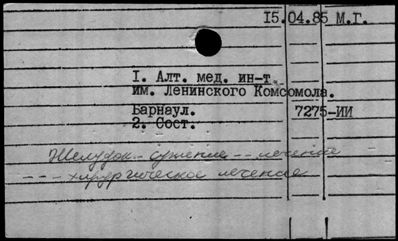 15.04.85 М.Г.
I. Алт. мед. ин-т
им. Ленинского Комсомола.
Барнаул. 7275-ИИ
2. Сост.
Желудок - сужение -- лечение
--- хирургическое лечение